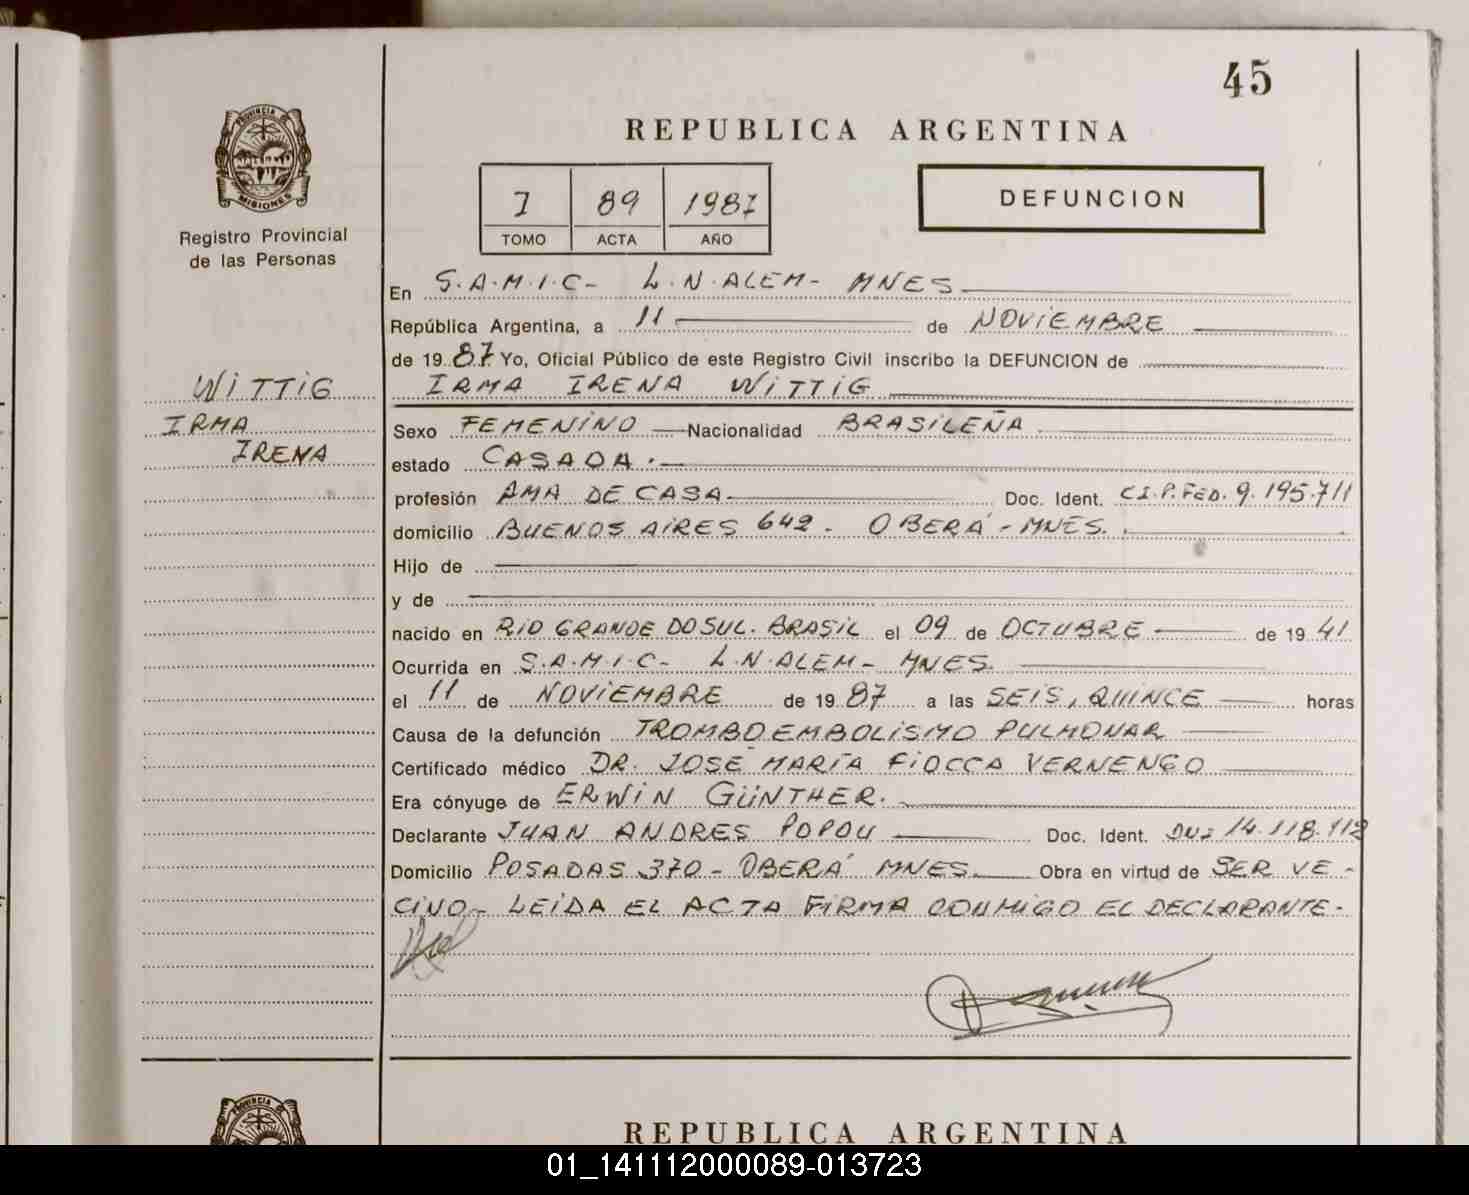 45
REPUBLICA ARGENTINA
I 89 1987
TOMO ACTA AÑO
DEFUNCION
PROVINCIA DE
MISIONES
Registro Provincial
de las Personas
En S.A.M.I.C- L.N.ALEM- MNES
República Argentina, a 11 de NOVIEMBRE
de 19 87. Yo, Oficial Público de este Registro Civil inscribo la DEFUNCION de
IRMA IRENA WITTIG
WITTIG
IRMA
IRENA
Sexo FEMENINO Nacionalidad BRASILEÑA
estado CASADA.
profesión AMA DE CASA Doc. Ident. C.I.P.FED. 9.195.711
domicilio BUENOS AIRES 642. OBERÁ - MNES.
Hijo de
y de
nacido en RIO GRANDE DO SUL. BRASIL el 09 de OCTUBRE de 19 41
Ocurrida en S.A.M.I.C- L.N.ALEM- MNES.
el 11 de NOVIEMBRE de 19 87 a las SEIS, QUINCE horas
Causa de la defunción TROMBOEMBOLISMO PULMONAR
Certificado médico DR. JOSE MARIA FIOCCA VERNENGO
Era cónyuge de ERWIN GÜNTHER.
Declarante JUAN ANDRES POPOU Doc. Ident. 14.118.112
Domicilio POSADAS 370 - OBERÁ MNES. Obra en virtud de SER VE-
CINO- LEIDA EL ACTA FIRMA CONMIGO EL DECLARANTE-
PROVINCIA
REPUBLICA ARGENTINA
01_141112000089-013723